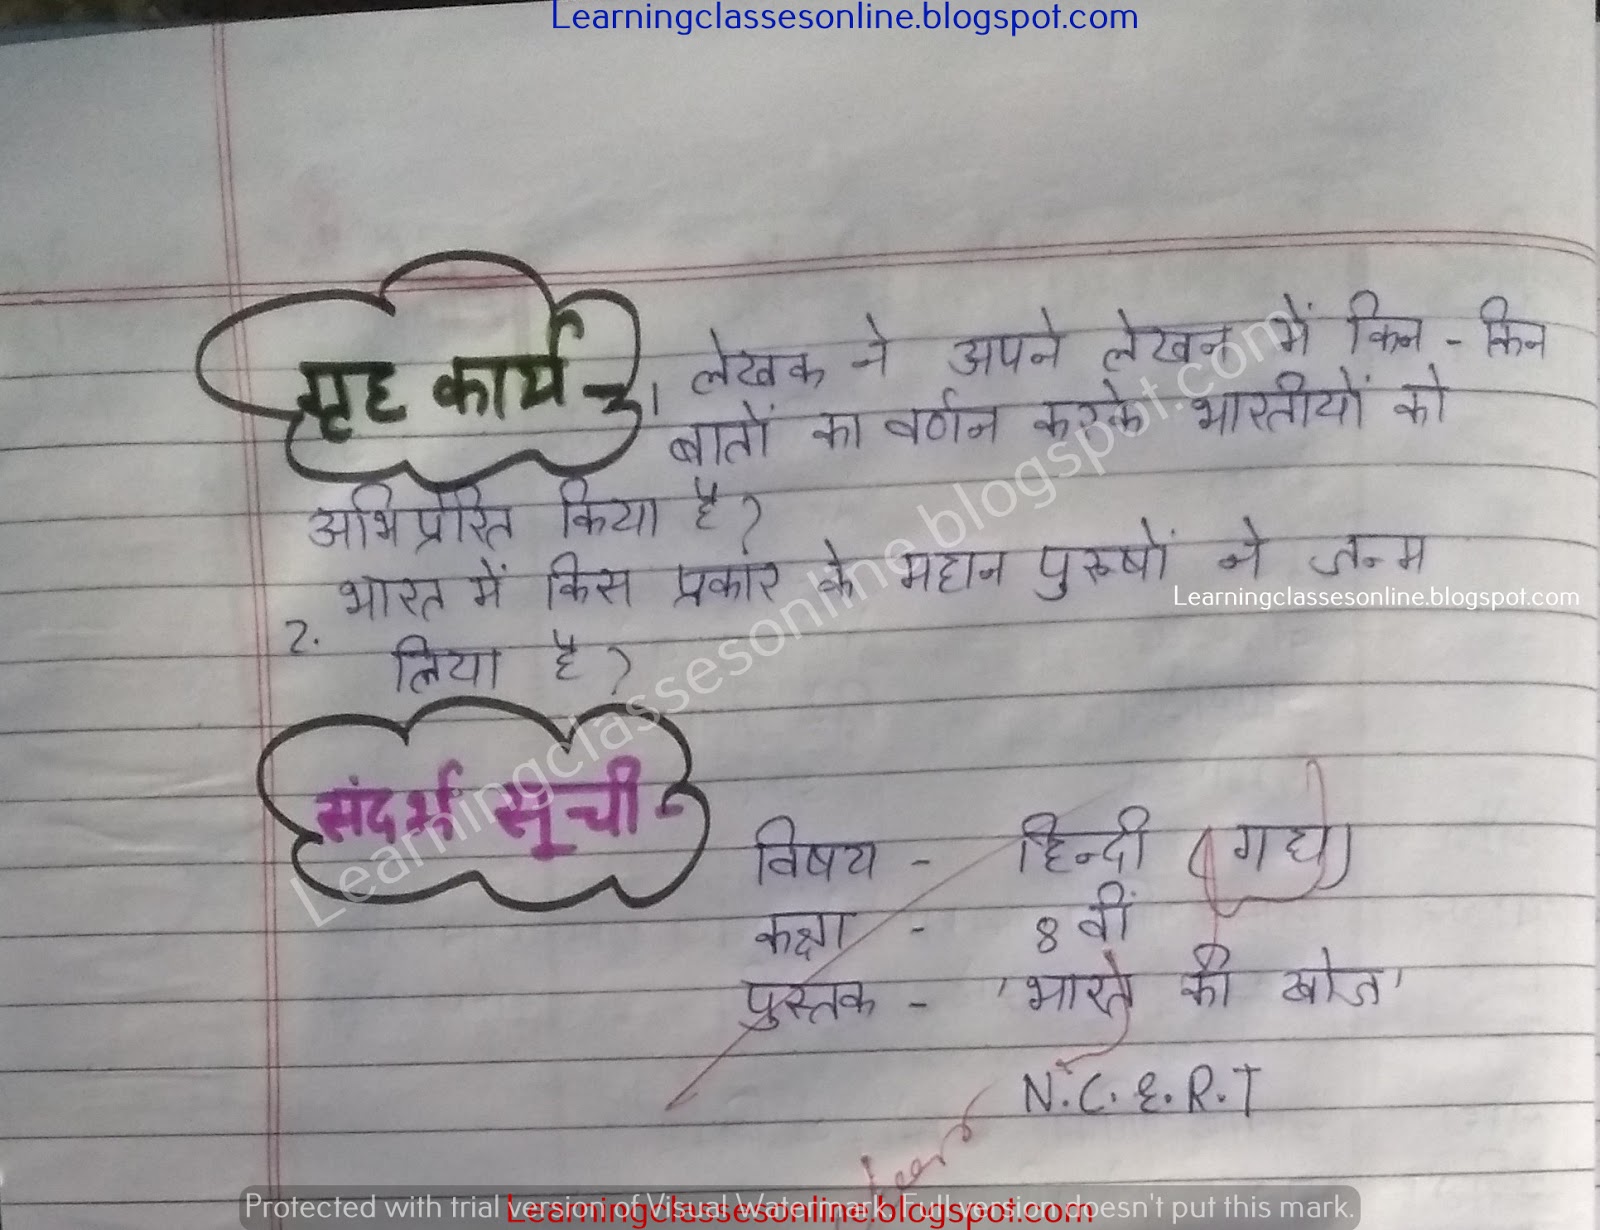 Learningclassesonline.blogspot.com
गृह कार्य
1. लेखक ने अपने लेखन में किन - किन
बातों का वर्णन करके भारतीयों को
अभिप्रेरित किया है?
2. भारत में किस प्रकार के महान पुरूषों ने जन्म
Learningclassesonline.blogspot.com
लिया है?
Learningclassesonline.blogspot.com
संदर्भ सूची
विषय - हिन्दी (गद्य)
कक्षा - 8 वीं
पुस्तक - 'भारत की खोज'
N.C.E.R.T
Protected with trial version of Visual Watermark. Full version doesn't put this mark.
Learningclassesonline.blogspot.com